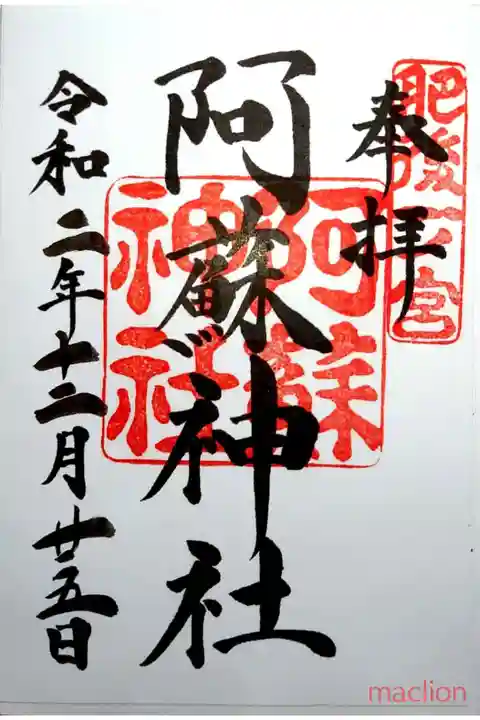 肥後一宮
奉拝
阿蘇神社
阿蘇
神社
令和二年十二月廿五日
maclion